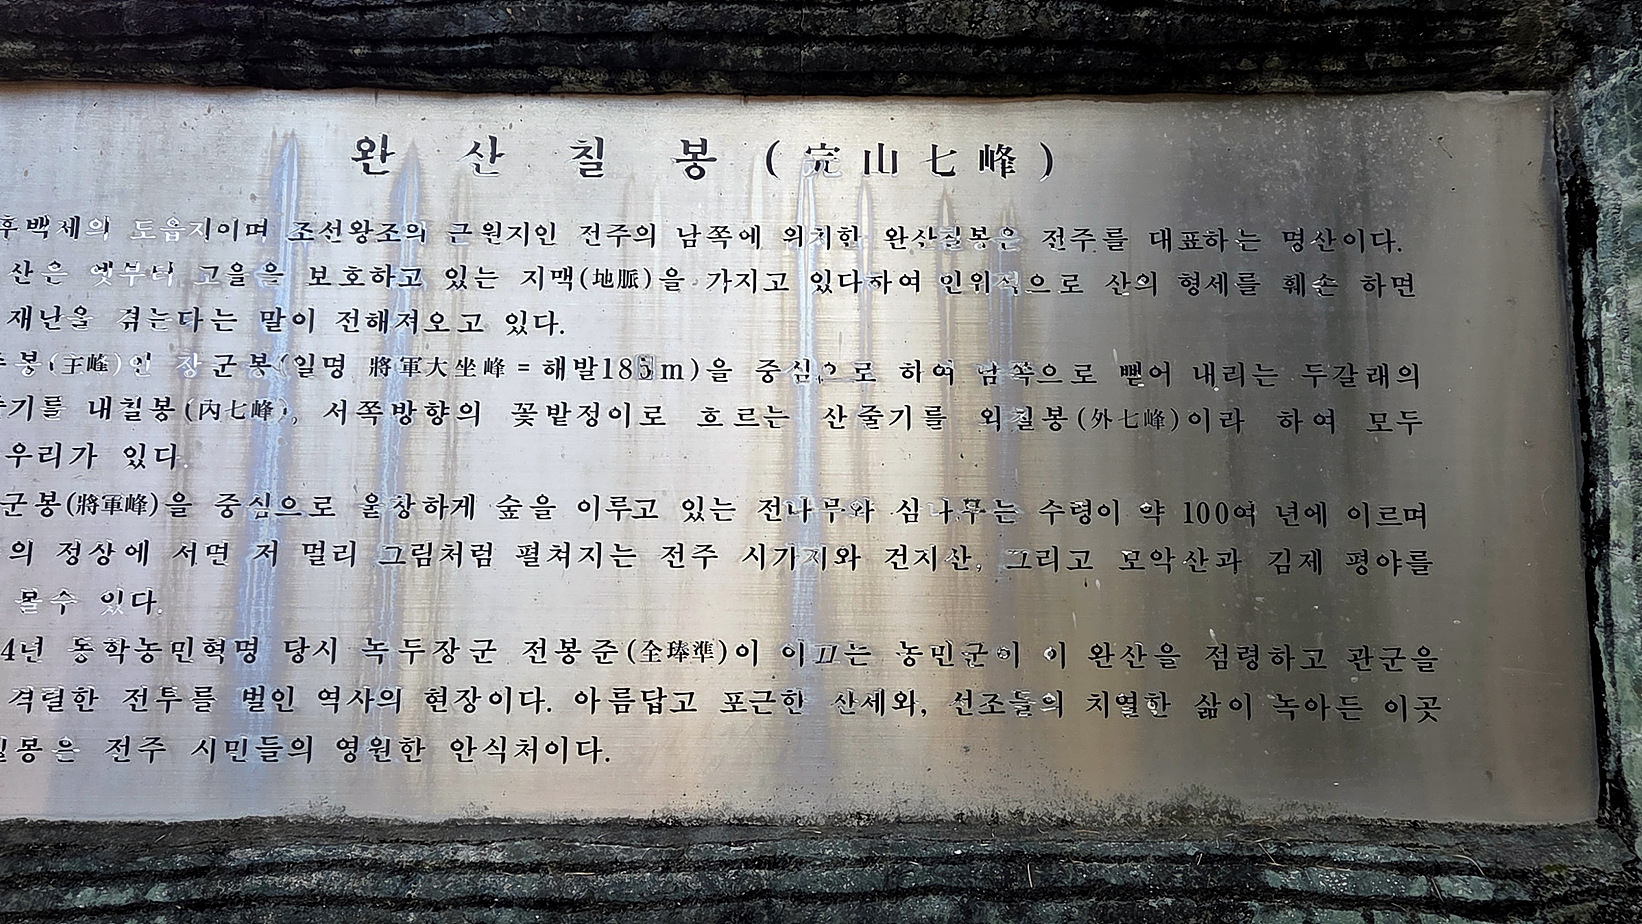 완 산 칠 봉 (完山七峰)
후백제의 도읍지이며 조선왕조의 근원지인 전주의 남쪽에 위치한 완산칠봉은 전주를 대표하는 명산이다.
산은 옛부터 고을을 보호하고 있는 지맥(地脈)을 가지고 있다하여 인위적으로 산의 형세를 훼손 하면
재난을 겪는다는 말이 전해져오고 있다.
봉(主峰)인 장군봉(일명 將軍大坐峰=해발185m)을 중심으로 하여 남쪽으로 뻗어 내리는 두갈래의
기를 내칠봉(內七峰), 서쪽방향의 꽃밭정이로 흐르는 산줄기를 외칠봉(外七峰)이라 하여 모두
우리가 있다.
군봉(將軍峰)을 중심으로 울창하게 숲을 이루고 있는 전나무와 삼나무는 수령이 약 100여 년에 이르며
의 정상에 서면 저 멀리 그림처럼 펼쳐지는 전주 시가지와 건지산, 그리고 모악산과 김제 평야를
볼수 있다.
4년 동학농민혁명 당시 녹두장군 전봉준(全琫準)이 이끄는 농민군이 이 완산을 점령하고 관군을
격렬한 전투를 벌인 역사의 현장이다. 아름답고 포근한 산세와, 선조들의 치열한 삶이 녹아든 이곳
봉은 전주 시민들의 영원한 안식처이다.